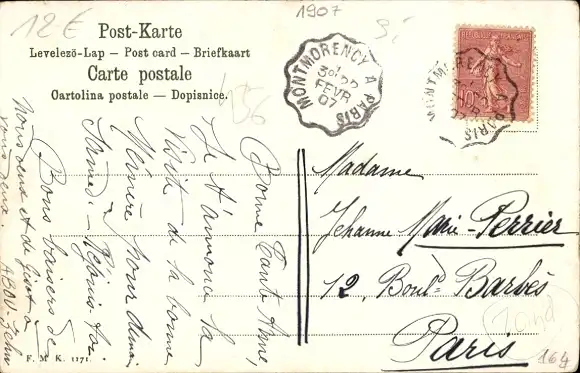 12 €
1907
Post-Karte
Levelezö-Lap — Post card — Briefkaart
Carte postale
Cartolina postale — Dopisnice.
MONTMORENCY A PARIS
3e 22
FEVR
07
REPUBLIQUE FRANÇAISE
MONTMORENCY A PARIS
Bonne Tante Anne,
Je t'annonce la
visite de la bonne
Mémère pour demain
Bons baisers de
nous deux et de
Madame
Jehanne Marie-Perrier
12, Bould Barbès
Paris
F. M. K. 1171.
164